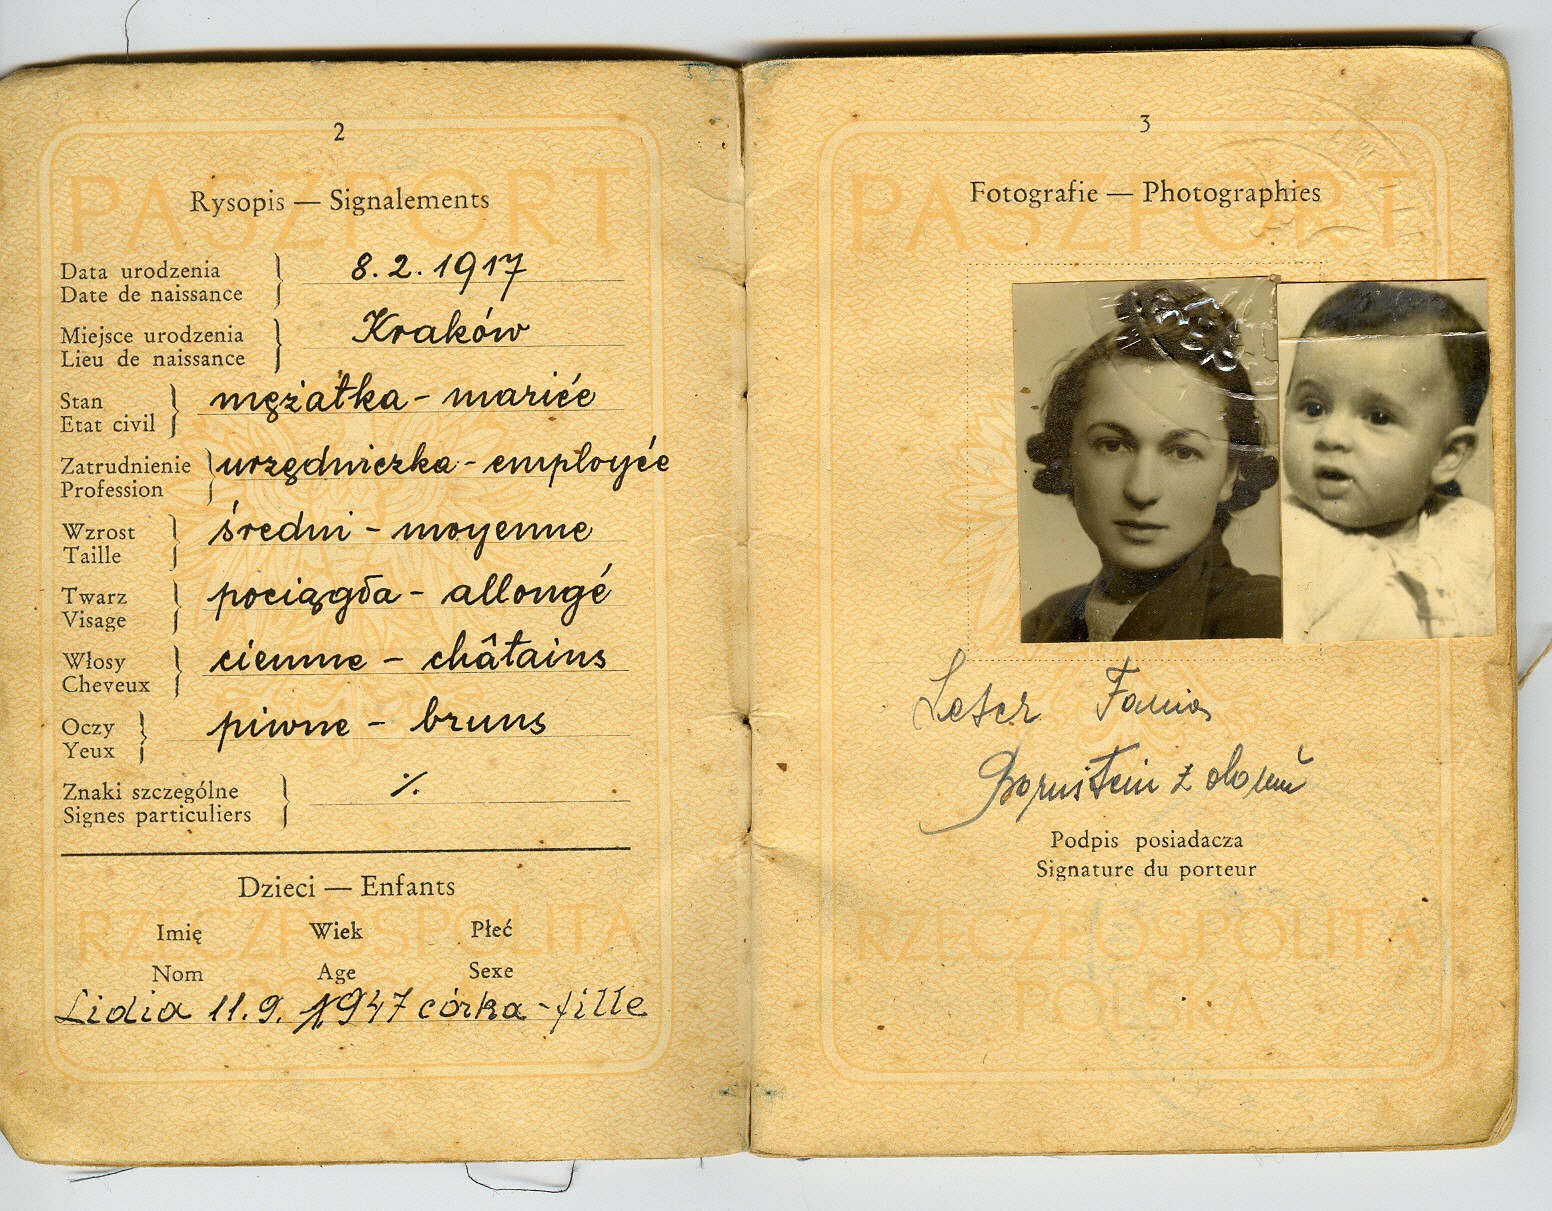 2
PASZPORT
Rysopis — Signalements
Data urodzenia
Date de naissance
8. 2. 1917
Miejsce urodzenia
Lieu de naissance
Kraków
Stan
Etat civil
mężatka - mariée
Zatrudnienie
Profession
urzędniczka - employée
Wzrost
Taille
średni - moyenne
Twarz
Visage
pociągła - allongé
Włosy
Cheveux
ciemne - châtains
Oczy
Yeux
piwne - bruns
Znaki szczególne
Signes particuliers
·/.
Dzieci — Enfants
RZECZPOSPOLITA
Imię Wiek Płeć
Nom Age Sexe
Lidia 11. 9. 1947 córka - fille
3
PASZPORT
Fotografie — Photographies
Leser
Bornstein z domu
Podpis posiadacza
Signature du porteur
RZECZPOSPOLITA
POLSKA